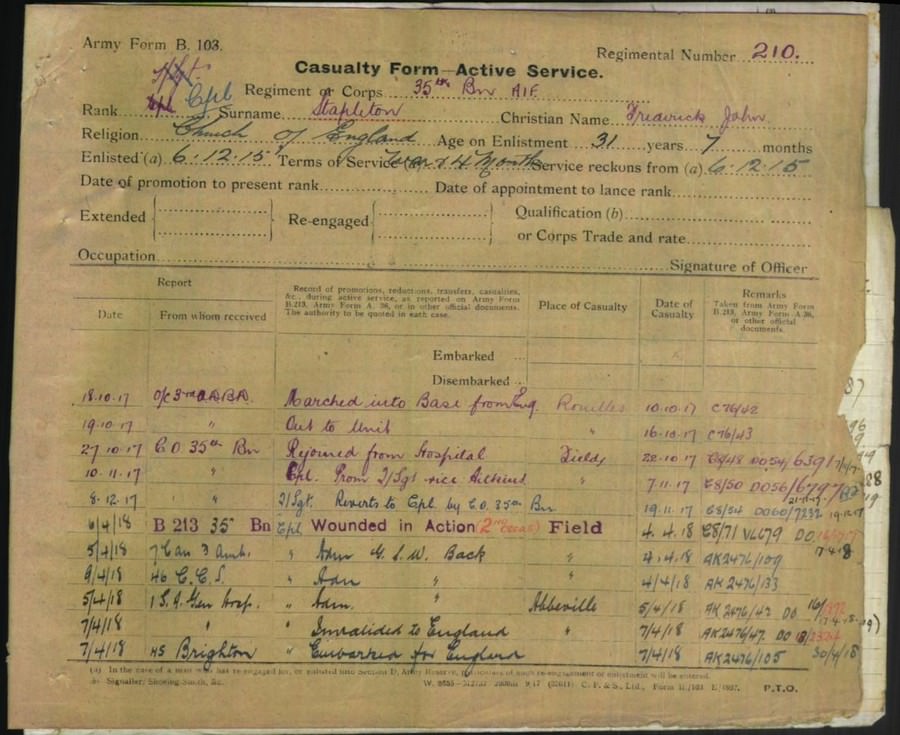 Army Form B. 103.
Regimental Number 210.
Casualty Form—Active Service.
Regiment or Corps 35th Bn AIF
Rank Cpl Surname Stapleton Christian Name Frederick John
Religion Church of England Age on Enlistment 31 years 7 months
Enlisted (a) 6.12.15 Terms of Service (a) War & 4 Months Service reckons from (a) 6.12.15
Date of promotion to present rank Date of appointment to lance rank
Extended Re-engaged Qualification (b)
or Corps Trade and rate
Occupation Signature of Officer
Report
Date From whom received
Record of promotions, reductions, transfers, casualties, &c., during active service, as reported on Army Form B.213, Army Form A. 36, or in other official documents. The authority to be quoted in each case.
Place of Casualty
Date of Casualty
Remarks
Taken from Army Form B.213, Army Form A.36, or other official documents.
Embarked
Disembarked
18.10.17 O/C 3rd A.D.B.D. Marched into Base from Eng. Rouelles 10.10.17 C76/42
19.10.17 " Out to Unit " 16.10.17 C76/43
27.10.17 C.O. 35th Bn Rejoined from Hospital Field 22.10.17 DO54/6391
10.11.17 " Cpl. Prom T/Sgt vice 7.11.17 E8/50 DO56/6797
8.12.17 " T/Sgt. Reverts to Cpl. by C.O. 35th Bn 19.11.17 E8/54 DO60/7232 19.12.17
6/4/18 B 213 35th Bn Cpl Wounded in Action (2nd occas) Field 4.4.18 E8/71 VL679 DO
5/4/18 " Adm G.S.W. Back " 4.4.18 AK2476/109
9/4/18 46 C.C.S. " Adm " " 4/4/18 AK2476/133
5/4/18 1 S.A. Gen Hosp. " Adm. " Abbeville 5/4/18 AK2476/47 DO
7/4/18 " " Invalided to England " 7/4/18 AK2476/47 DO
7/4/18 HS Brighton " Embarked for England 7/4/18 AK2476/105 30/4/18
(a) In the case of a man who has re-engaged for, or enlisted into Section D, Army Reserve, particulars of such re-engagement or enlistment will be entered.
(b) Signaller, Shoeing-Smith, &c.
C. F. & S., Ltd.,
P.T.O.